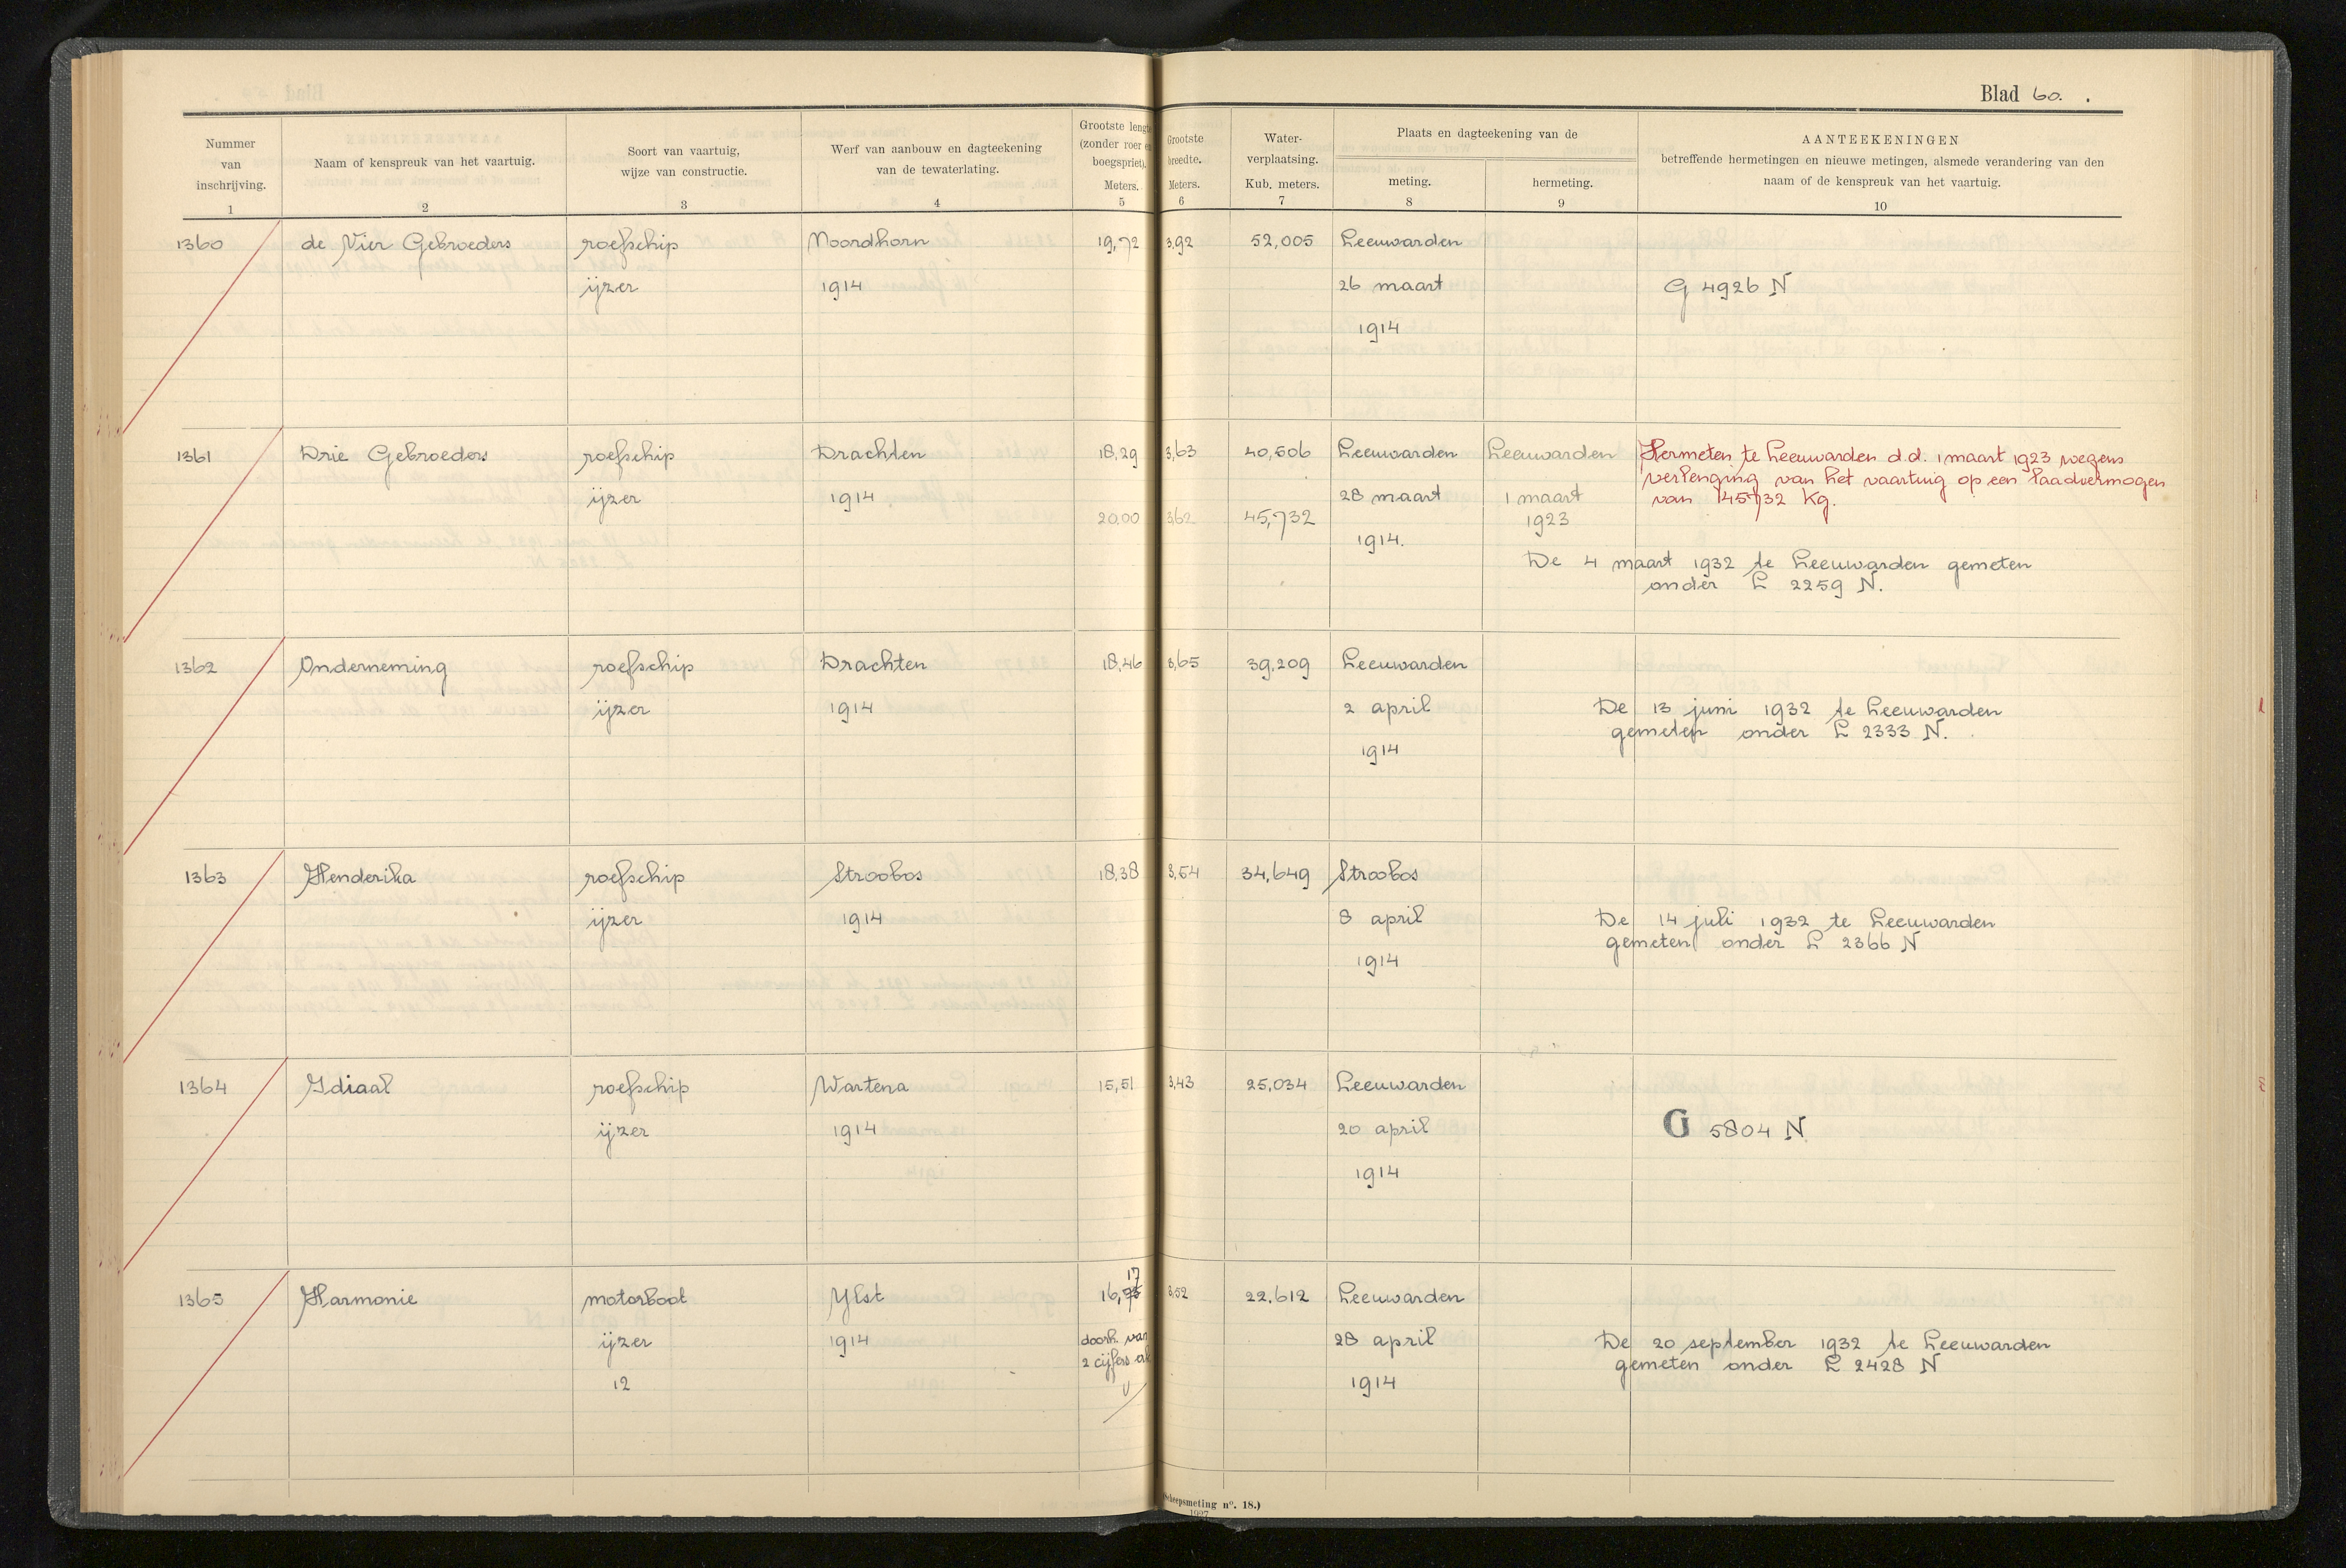 Blad 60.
Nummer van inschrijving.
Naam of kenspreuk van het vaartuig.
Soort van vaartuig, wijze van constructie.
Werf van aanbouw en dagteekening van de tewaterlating.
Grootste lengte (zonder roer en boegspriet). Meters.
Grootste breedte. Meters.
Water-verplaatsing. Kub. meters.
Plaats en dagteekening van de
meting.
hermeting.
AANTEEKENINGEN
betreffende hermetingen en nieuwe metingen, alsmede verandering van den
naam of de kenspreuk van het vaartuig.
1 2 3 4 5 6 7 8 9 10
1360 de Vier Gebroeders roefschip Noordhorn 19,72 3,92 52,005 Leeuwarden
ijzer 1914 26 maart G 4926 N
1914
1361 Drie Gebroeders roefschip Drachten 18,29 3,63 40,506 Leeuwarden Leeuwarden Hermeten te Leeuwarden d.d. 1 maart 1923 wegens
verlenging van het vaartuig op een laadvermogen
ijzer 1914 28 maart 1 maart van 145732 Kg.
20,00 3,62 45,732 1923
1914.
De 4 maart 1932 te Leeuwarden gemeten
onder L 2259 N.
1362 Onderneming roefschip Drachten 18,46 3,65 39,209 Leeuwarden
ijzer 1914 2 april De 13 juni 1932 te Leeuwarden
gemeten onder L 2333 N.
1914
1363 Henderika roefschip Stroobos 18,38 3,54 34,649 Stroobos
ijzer 1914 8 april De 14 juli 1932 te Leeuwarden
gemeten onder L 2366 N
1914
1364 Idiaal roefschip Wartena 15,51 3,43 25,034 Leeuwarden
ijzer 1914 20 april G 5804 N
1914
17
1365 Harmonie motorboot Ylst 16,75 3,52 22,612 Leeuwarden
ijzer 1914 doorh. van 28 april De 20 september 1932 te Leeuwarden
2 cijfers gemeten onder L 2428 N
12 1914
(Scheepsmeting nº. 18.)
1927